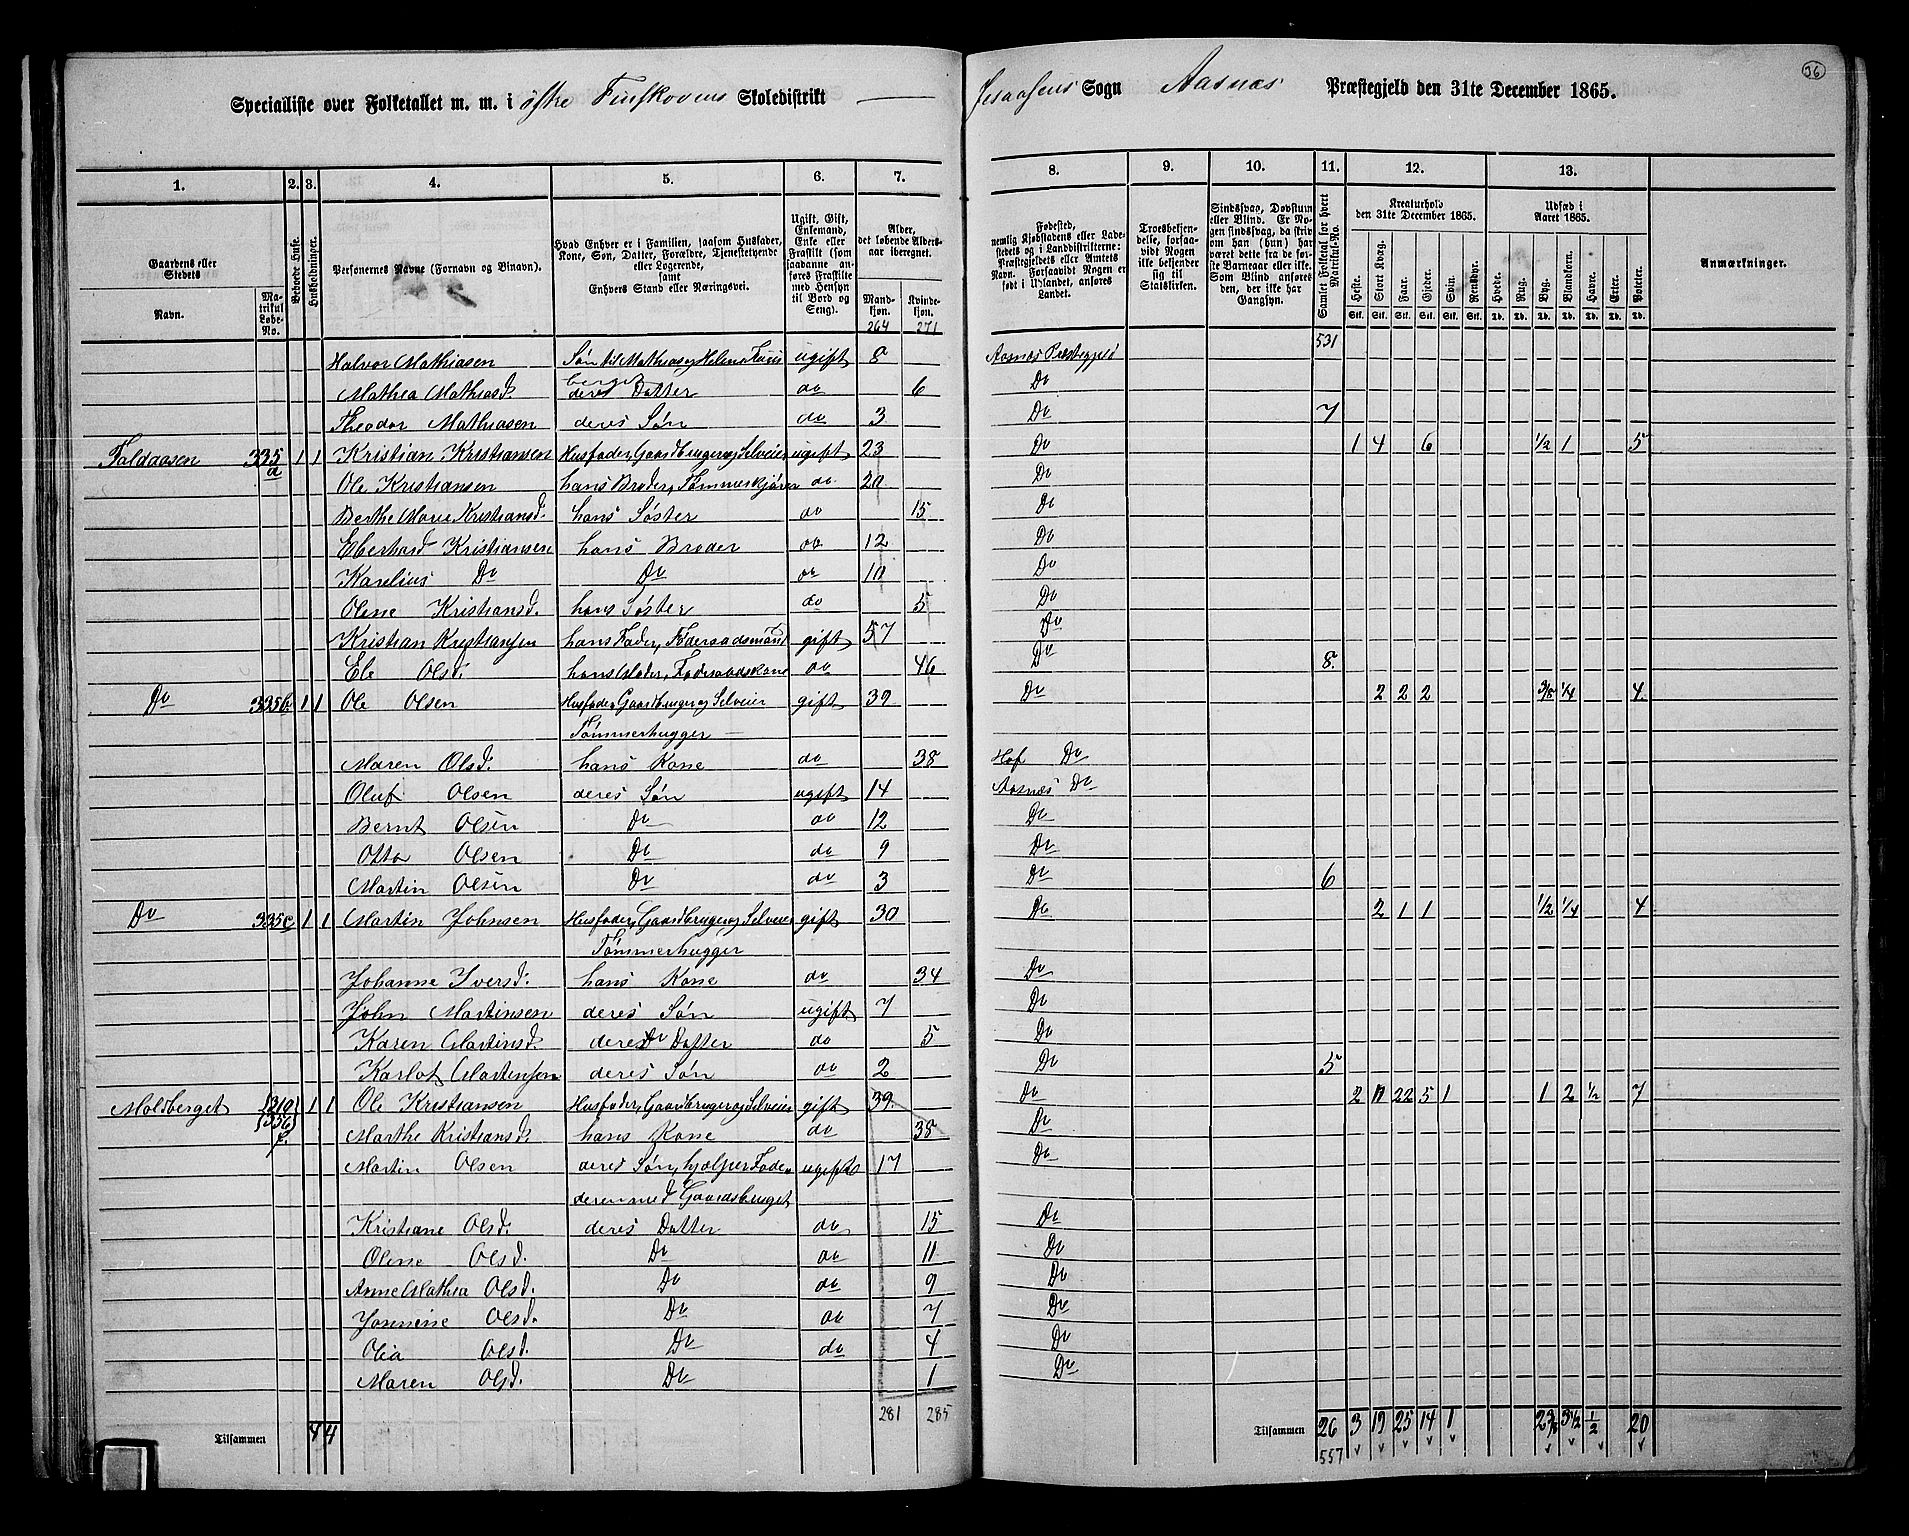 Specialliste over Folketallet m. m. i østre Finskovens Skoledistrikt — Sogn Aasnæs Præstegjeld den 31te December 1865.
36
1. 2. 3. 4. 5. 6. 7. 8. 9. 10. 11. 12. 13.
Gaardens eller Stedets
Navn. Matrikul Løbe-No.
Beboede Huse.
Husholdninger.
Personernes Navne (Fornavn og Binavn).
Hvad Enhver er i Familien, saasom Husfader, Kone, Søn, Datter, Forældre, Tjenestetyende eller Logerende, samt Enhvers Stand eller Næringsvei.
Ugift, Gift, Enkemand, Enke eller Fraskilt (som saadanne anføres Fraskilte med Hensyn til Bord og Seng).
Alder, det løbende Aldersaar iberegnet.
Mandkjøn. Kvindekjøn.
264 271
Fødested, nemlig Kjøbstadens eller Ladestedets og i Landdistrikterne: Præstegjeldets eller Amtets Navn. Forsaavidt Nogen er født i Udlandet, anføres Landet.
Troesbekjendelse, forsaavidt Nogen ikke bekjender sig til Statskirken.
Sindssvag, Døvstum eller Blind. Er Nogen sindssvag, da skrives om han (hun) har været dette fra de første Barneaar eller ikke. Som Blind anføres den, der ikke har Gangsyn.
Samlet Folketal for hvert Matrikul-No.
Kreaturhold den 31te December 1865.
Heste. Stort Kvæg. Faar. Gjeder. Svin. Rensdyr.
Udsæd i Aaret 1865.
Hvede. Rug. Byg. Blandkorn. Havre. Erter. Poteter.
Anmærkninger.
531
Halvor Mathiasen Søn til Mathias og Helene Karis ugift 8 Aasnæs Præstegjeld
berget
Mathea Mathiasd. deres Datter do 6 Do
Theodor Mathiasen deres Søn do 3 Do 7
Faldaasen 335a 1 1 Kristian Kristiansen Husfader, Gaardbruger og Selveier ugift 23 Do 1 4 6 1/2 1 5
Ole Kristiansen hans Broder, Tømmerkjører do 20 Do
Berthe Marie Kristiansd. hans Søster do 15 Do
Eberhard Kristiansen hans Broder do 12 Do
Karelius Do Do do 10 Do
Oline Kristiansd. hans Søster do 5 Do
Kristian Kristiansen hans Fader, Føderaadsmand gift 57 Do
Ele Olsd. hans Moder, Føderaadskone do 46 Do 8.
Do 335b 1 1 Ole Olsen Husfader, Gaardbruger og Selveier gift 39 Do 2 2 2 3/8 1/4 4
Tømmerhugger —
Maren Olsd. hans Kone do 38 Hof Do
Oluf Olsen deres Søn ugift 14 Aasnæs Do
Bernt Olsen Do do 12 Do
Otto Olsen Do do 9 Do
Martin Olsen Do do 3 Do 6
Do 335c 1 1 Martin Johnsen Husfader, Gaardbruger og Selveier gift 30 Do 2 1 1 1/2 1/4 4
Tømmerhugger
Johanne Iversd. hans Kone do 34 Do
John Martinsen deres Søn ugift 7 Do
Karen Martinsd. deres Datter do 5 Do
Karlot Martinsen deres Søn do 2 Do 5
Moldberget 310 1 1 Ole Kristiansen Husfader, Gaardbruger og Selveier gift 39 Do 2 11 22 5 1 1 2 1/2 7
336 f. Marthe Kristiansd. hans Kone do 38 Do
Martin Olsen deres Søn, hjelper Fade- ugift 17 Do
deren med Gaardsbruget
Kristiane Olsd. deres Datter do 15 Do
Oline Olsd. Do do 11 Do
Anne Mathea Olsd. Do do 9 Do
Olsd. Do do 7 Do
Olia Olsd. Do do 4 Do
Maren Olsd. Do 1 Do
281 285
Tilsammen 4 4 Tilsammen 26 3 19 25 14 1 2 3/8 3 1/2 1/2 20
557